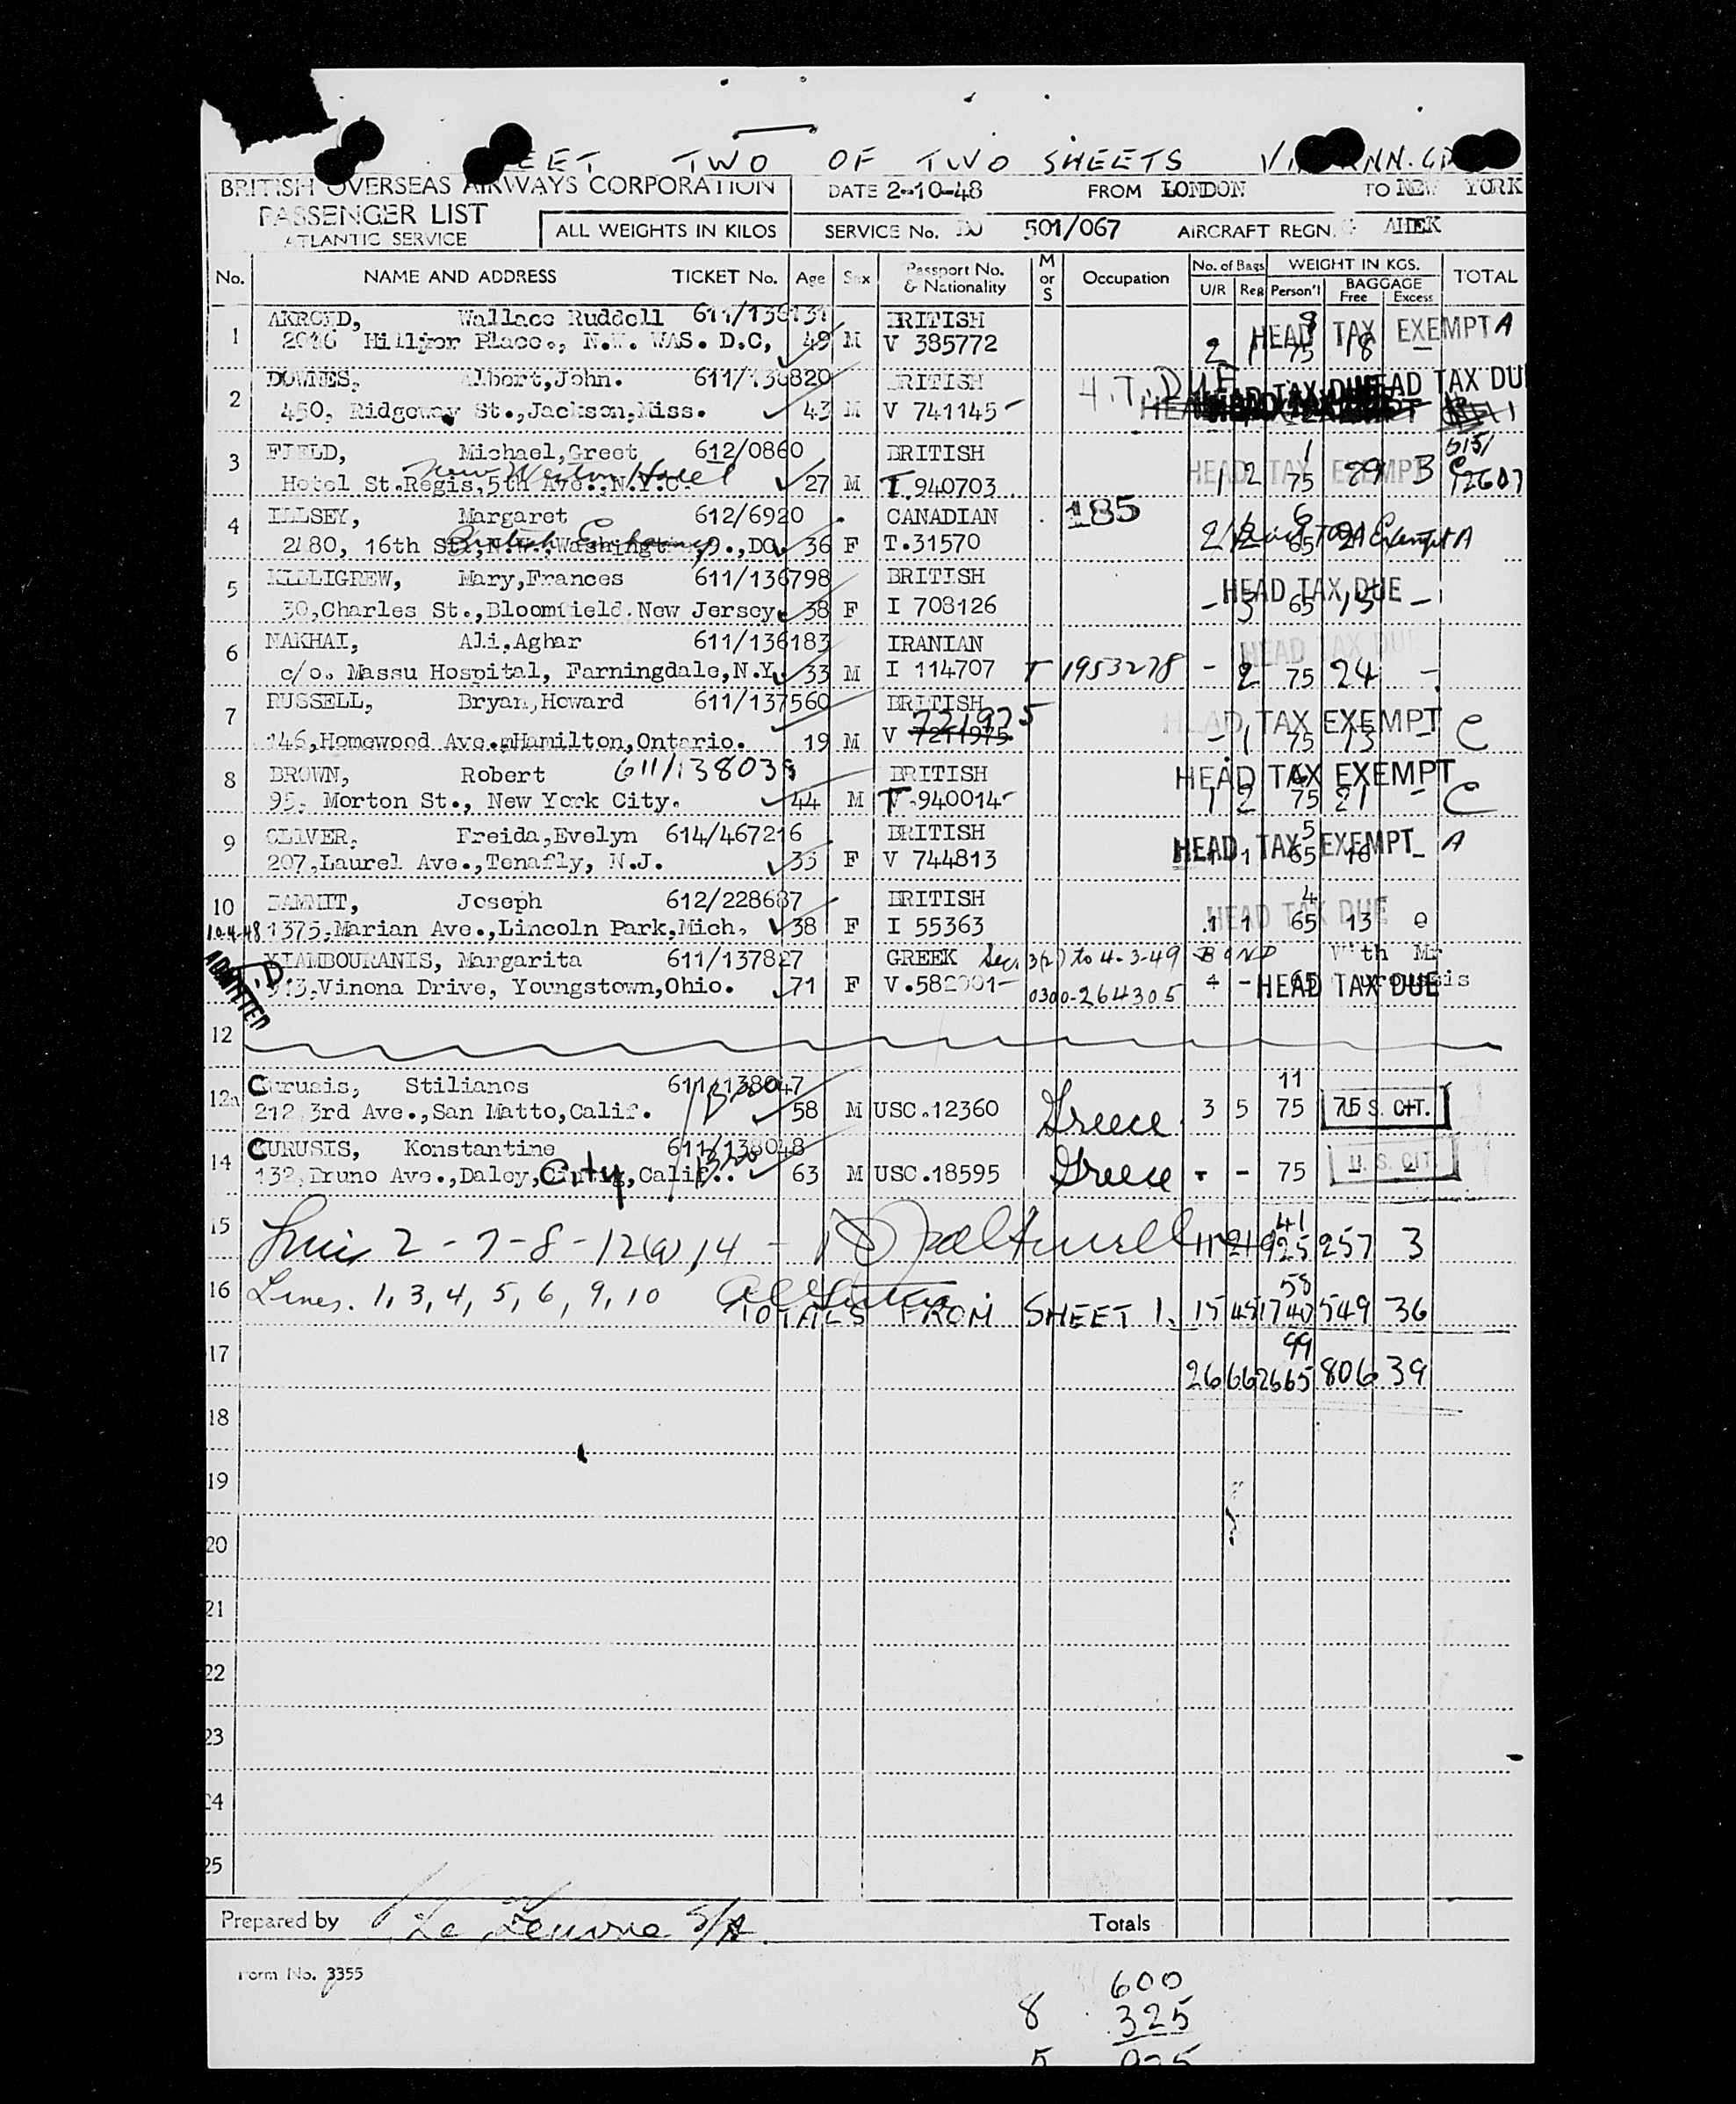 EET TWO OF TWO SHEETS
BRITISH OVERSEAS AIRWAYS CORPORATION DATE 2-10-48 FROM LONDON TO NEW YORK
PASSENGER LIST
ATLANTIC SERVICE ALL WEIGHTS IN KILOS SERVICE No. 501/067 AIRCRAFT REGN. G AHEK
No. NAME AND ADDRESS TICKET No. Age Sex Passport No. & Nationality M or S Occupation No. of Bags U/R Reg WEIGHT IN KGS. Person'l BAGGAGE Free Excess TOTAL
1 AKROYD, Wallace Ruddell 611/138131 BRITISH 8 HEAD TAX EXEMPT A
Place., N.W. WAS. D.C, 49 M V 385772 2 1 75 18 -
2 DOWNES, Albert,John. 611/136820 BRITISH H.T. DUE HEAD TAX DU
450, Ridgeway St.,Jackson,Miss. 43 M V 741145
3 FIELD, Michael,Greet 612/0860 BRITISH 1 HEAD TAX EXEMPT B
Hotel St.Regis,5th Ave.,N.Y.C. New Weston Hotel 27 M I.940703 1 2 75 29
4 ILLSEY, Margaret 612/6920 CANADIAN 185 6
2480, 16th St.,N.W.,Washingt 36 F T.31570 2 2 65 21 Head Tax Exempt A
5 KILLIGREW, Mary,Frances 611/136798 BRITISH HEAD TAX DUE
30,Charles St.,Bloomfield.New Jersey. 38 F I 708126 - 3 65 15 -
6 NAKHAI, Ali,Aghar 611/136183 IRANIAN HEAD TAX DUE
c/o. Massu Hospital, Farningdale,N.Y. 33 M I 114707 T 1953278 - 2 75 24 -
7 RUSSELL, Bryan,Howard 611/137560 BRITISH 721975 HEAD TAX EXEMPT C
146,Homewood Ave.,Hamilton,Ontario. 19 M V 7211975 - 1 75 13 -
8 BROWN, Robert 611/138038 BRITISH HEAD TAX EXEMPT
95, Morton St., New York City. 44 M T.940014 1 2 75 21 - C
9 OLIVER, Freida,Evelyn 614/467216 BRITISH 5 HEAD TAX EXEMPT A
207,Laurel Ave.,Tenafly, N.J. 35 F V 744813 1 1 65 18 -
10 Joseph 612/228687 BRITISH 4 HEAD TAX DUE
10.4.48 1375,Marian Ave.,Lincoln Park,Mich. 38 F I 55363 1 1 65 13 0
XIAMBOURANIS, Margarita 611/137827 GREEK Sec. 3(2) to 4-3-49 BOND With Mr
ADMITTED Vinona Drive, Youngstown,Ohio. 71 F 0300-264305 HEAD TAX DUE
12
12a Curusis, Stilianos 611/138047 11
212,3rd Ave.,San Matto,Calif. 58 M USC.12360 Greece 3 5 75 U.S. CIT.
14 CURUSIS, Konstantine 611/138048
132,Bruno Ave.,Daley,City,Calif. 63 M USC.18595 Greece - - 75 U.S. CIT.
15 Lines 2-7-8-12(a),14 - 11 21 925 41 257 3
16 Lines. 1, 3, 4, 5, 6, 9, 10 TOTALS FROM SHEET 1. 15 45 1740 58 549 36
17 26 66 2665 99 806 39
18
19
20
21
22
23
24
25
Prepared by S/A. Totals
Form No. 3355
600
8 325
5